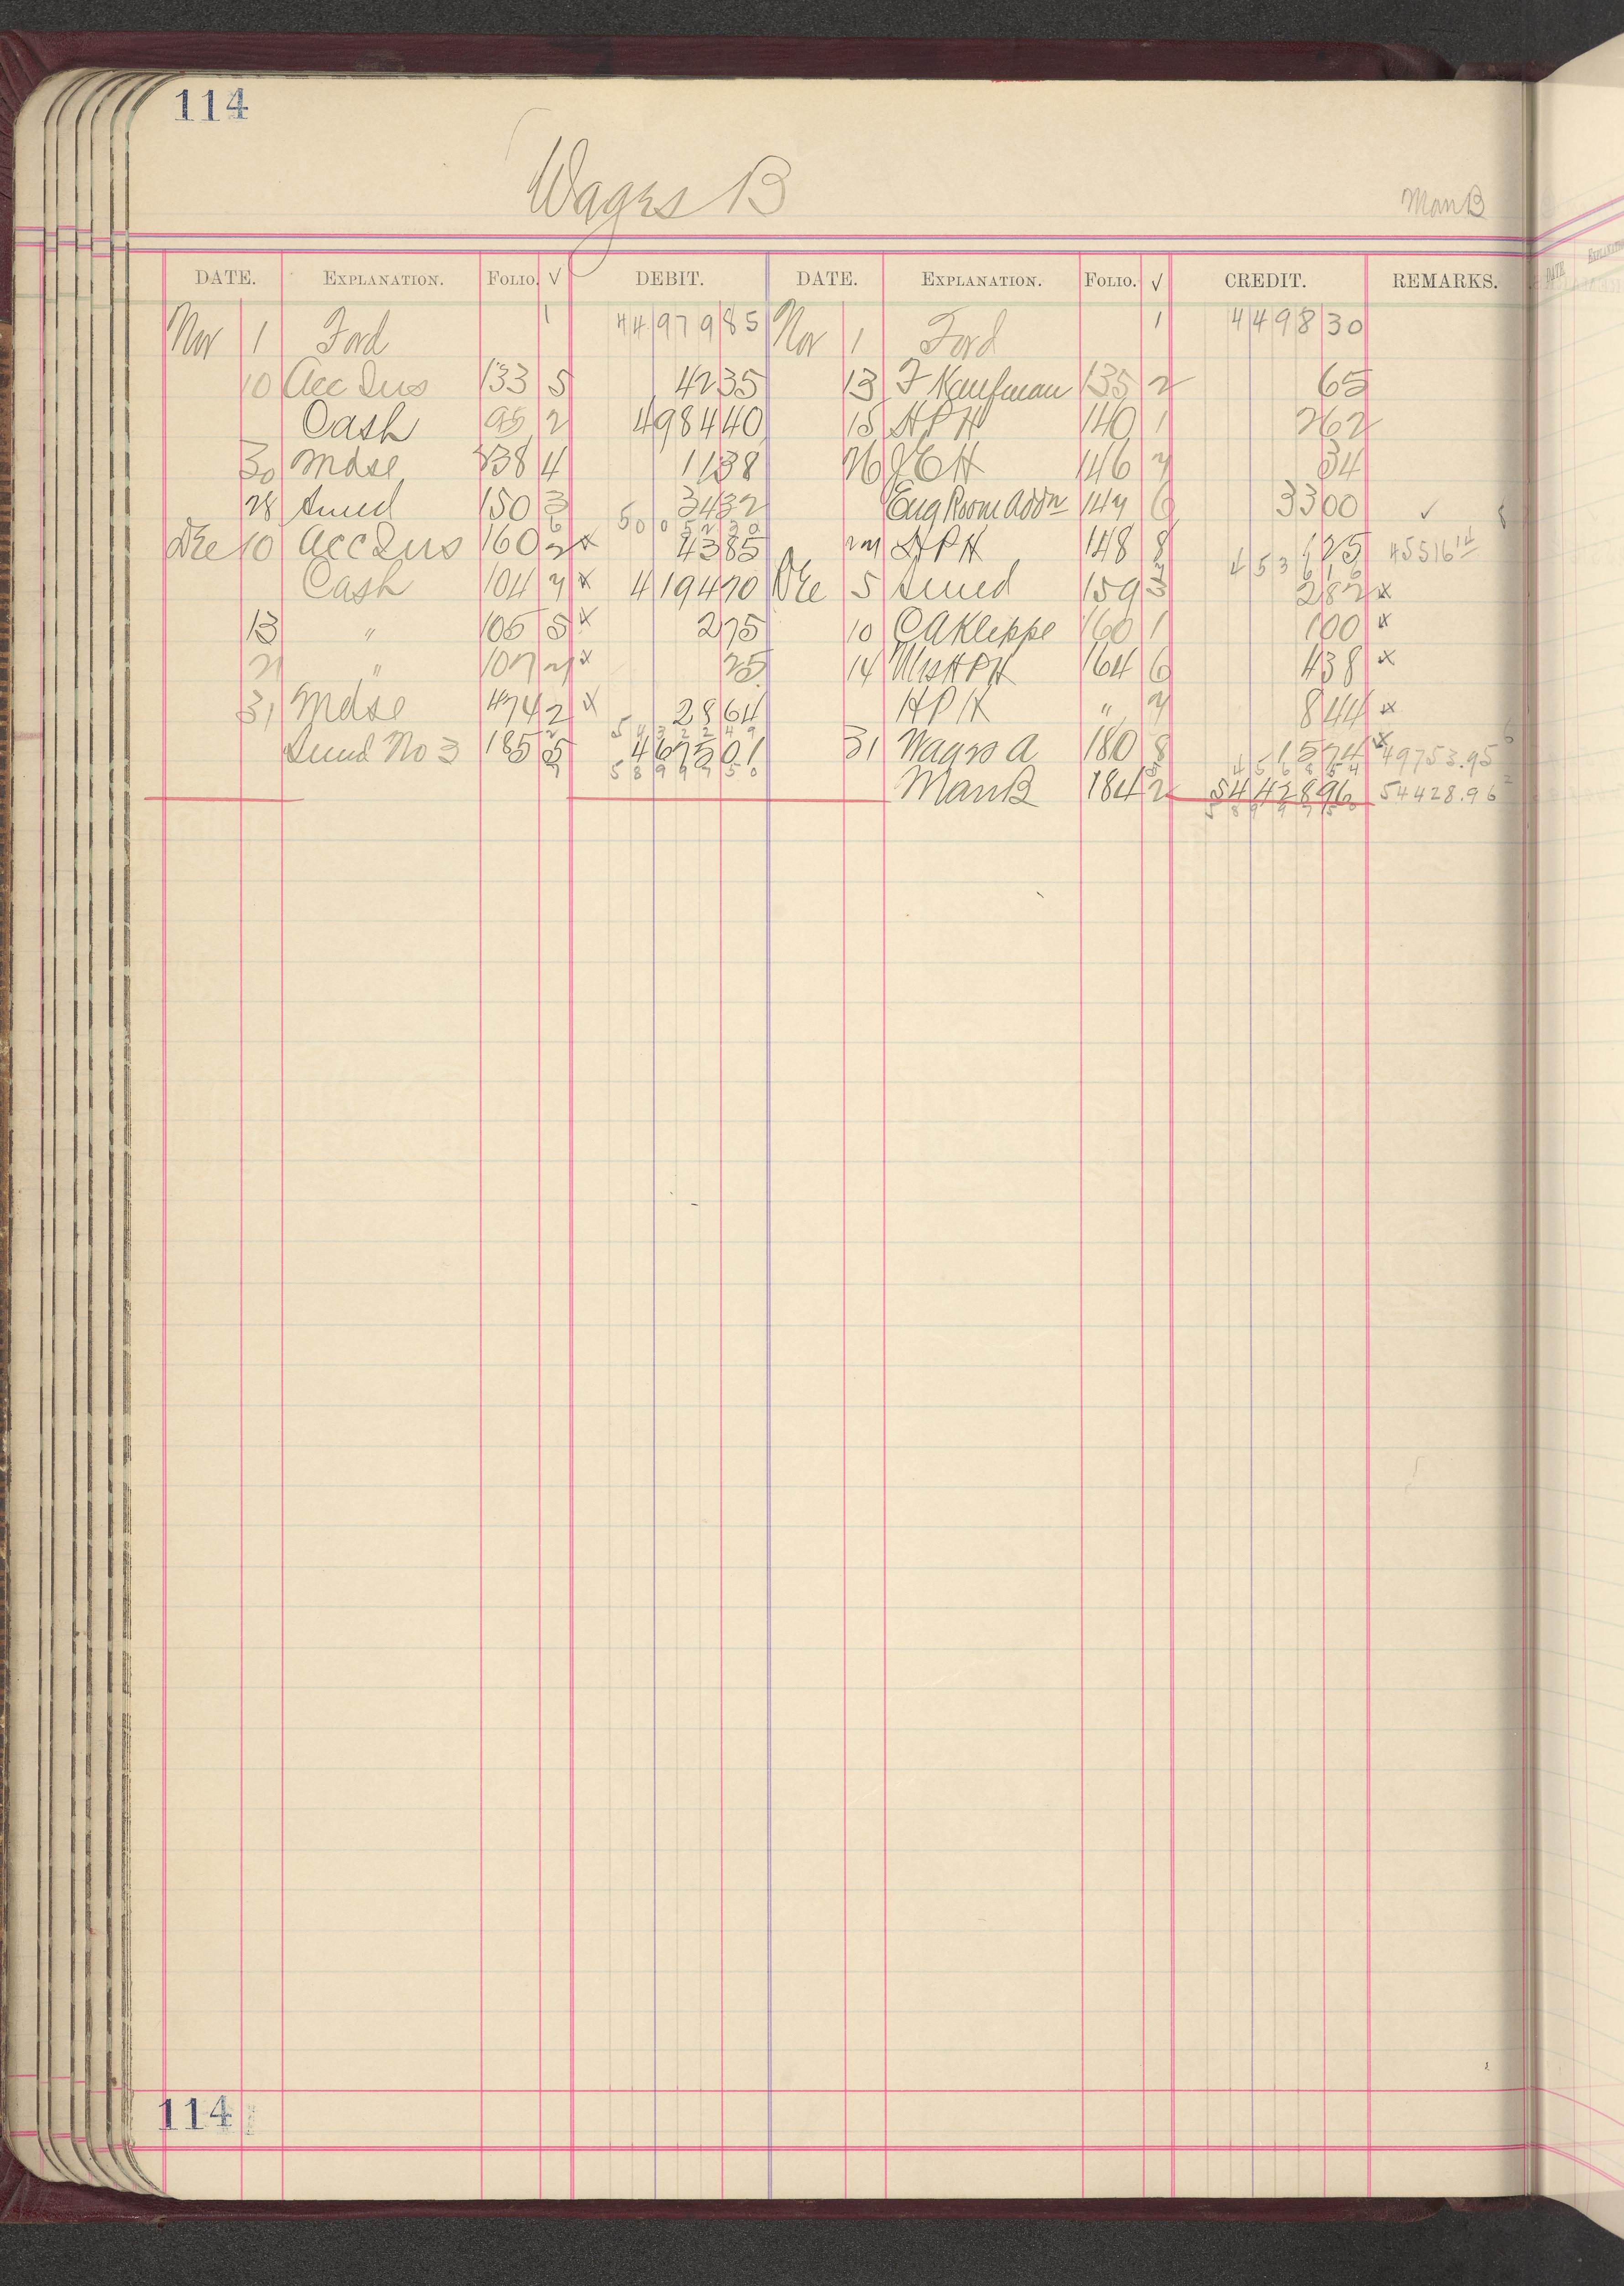 114
Wages B
Man B
DATE. EXPLANATION. FOLIO. √ DEBIT. DATE. EXPLANATION. FOLIO. √ CREDIT. REMARKS.
Nov 1 Ford 1 44979 85 Nov 1 Ford 1 4498 30
10 Acc Dus 133 5 42 35 13 F Kaufman 135 2 65
Cash 95 2 4984 40 15 HPH 140 1 2 62
30 Mdse 138 4 11 38 26 146 7 34
28 Sund 150 3 34 32 Eng Room Addn 149 6 33 00 ✓
50052 30
Dec 10 Acc Dus 160 2 x 43 85 HPH 148 8 1 25 45516 14
4536 16
Cash 104 7 x 4194 70 Dec 5 Sund 159 3 2 82 x
13 " 105 5 x 2 75 10 C A Kleppe 160 1 1 00 x
21 " 107 x 25 14 Mrs HPH 164 6 4 38 x
31 Mdse 174 2 x 28 64 HPH " 7 8 44 x
54322 49
Sund No 3 185 5 4675 01 31 Wages A 180 8 15 74 x 49753.95
58997 50 4568 54
Man B 184 2 54428 96 54428.96
58997 50
114